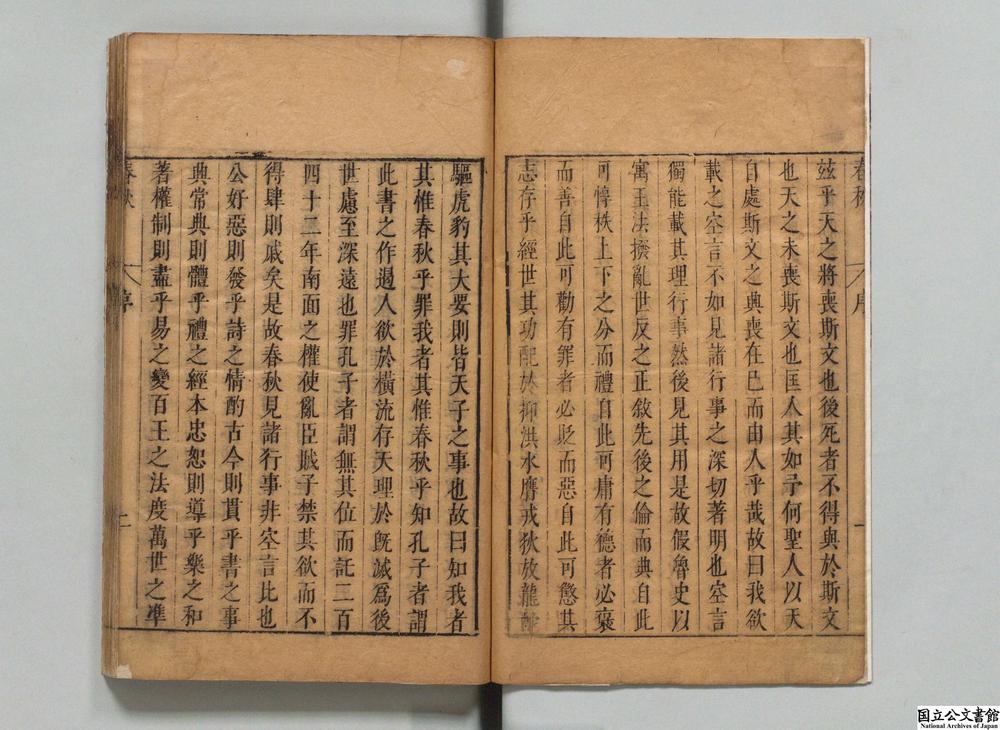 春秋 序 一
茲乎天之將喪斯文也後死者不得與於斯文
也天之未喪斯文也匡人其如予何聖人以天
自處斯文之興喪在已而由人乎哉故曰我欲
載之空言不如見諸行事之深切著明也空言
獨能載其理行事然後見其用是故假魯史以
寓王法撥亂世反之正敘先後之倫而典自此
可惇秩上下之分而禮自此可庸有德者必褒
而善自此可勸有罪者必貶而惡自此可懲其
志存乎經世其功配於抑洪水膺戎狄放龍蛇
驅虎豹其大要則皆天子之事也故曰知我者
其惟春秋乎罪我者其惟春秋乎知孔子者謂
此書之作遏人欲於橫流存天理於旣滅爲後
世慮至深遠也罪孔子者謂無其位而託二百
四十二年南面之權使亂臣賊子禁其欲而不
得肆則戚矣是故春秋見諸行事非空言比也
公好惡則發乎詩之情酌古今則貫乎書之事
興常典則體乎禮之經本忠恕則導乎樂之和
著權制則盡乎易之變百王之法度萬世之準
春秋 序 二
国立公文書館
National Archives of Japan